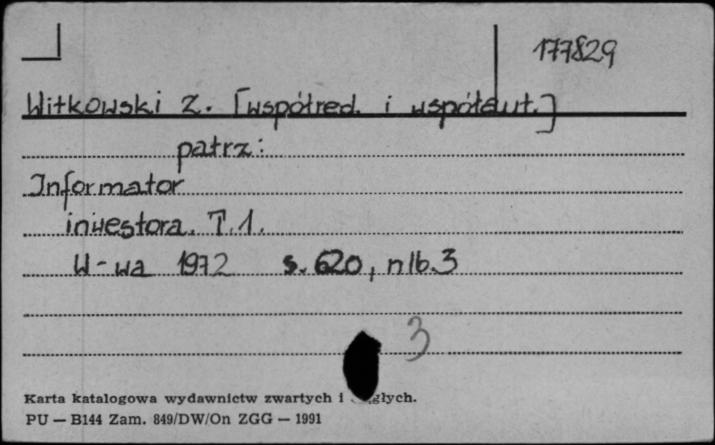 177829
Witkowski Z. [współred. i współaut.]
patrz:
Informator
inwestora. T.1.
W-wa 1972 s. 620, nlb.3
3
Karta katalogowa wydawnictw zwartych i
PU — B144 Zam. 849/DW/On ZGG — 1991